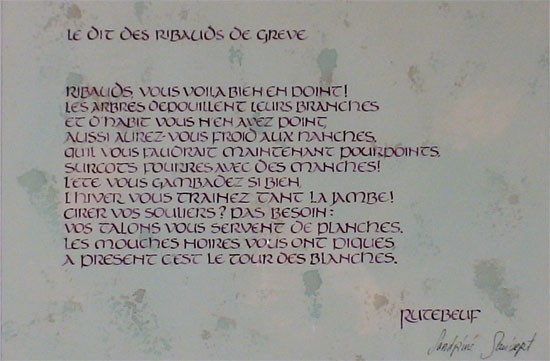 LE DIT DES RIBAUDS DE GREVE
RIBAUDS, VOUS VOILA BIEN EN POINT!
LES ARBRES DEPOUILLENT LEURS BRANCHES
ET D'HABIT VOUS N'EN AVEZ POINT,
AUSSI AUREZ-VOUS FROID AUX HANCHES.
QU'IL VOUS FAUDRAIT MAINTENANT POURPOINTS,
SURCOTS FOURRES AVEC DES MANCHES!
L'ETE VOUS GAMBADEZ SI BIEN,
L'HIVER VOUS TRAINEZ TANT LA JAMBE!
CIRER VOS SOULIERS? PAS BESOIN:
VOS TALONS VOUS SERVENT DE PLANCHES.
LES MOUCHES NOIRES VOUS ONT PIQUES
A PRESENT C'EST LE TOUR DES BLANCHES.
RUTEBEUF